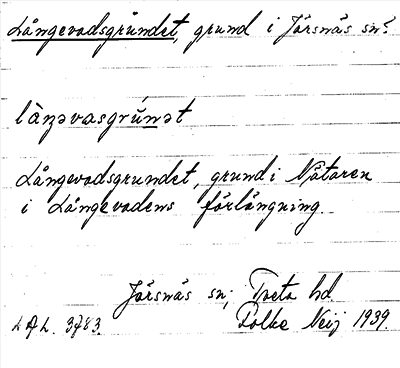 Långevadsgrundet, grund i Järsnäs sn.
làŋəvasgrúnət
Långevadsgrundet, grund i Nätaren
i Långevadens förlängning.
Järsnäs sn; Tveta hd
LAL. 3783. Folke Neij 1939.